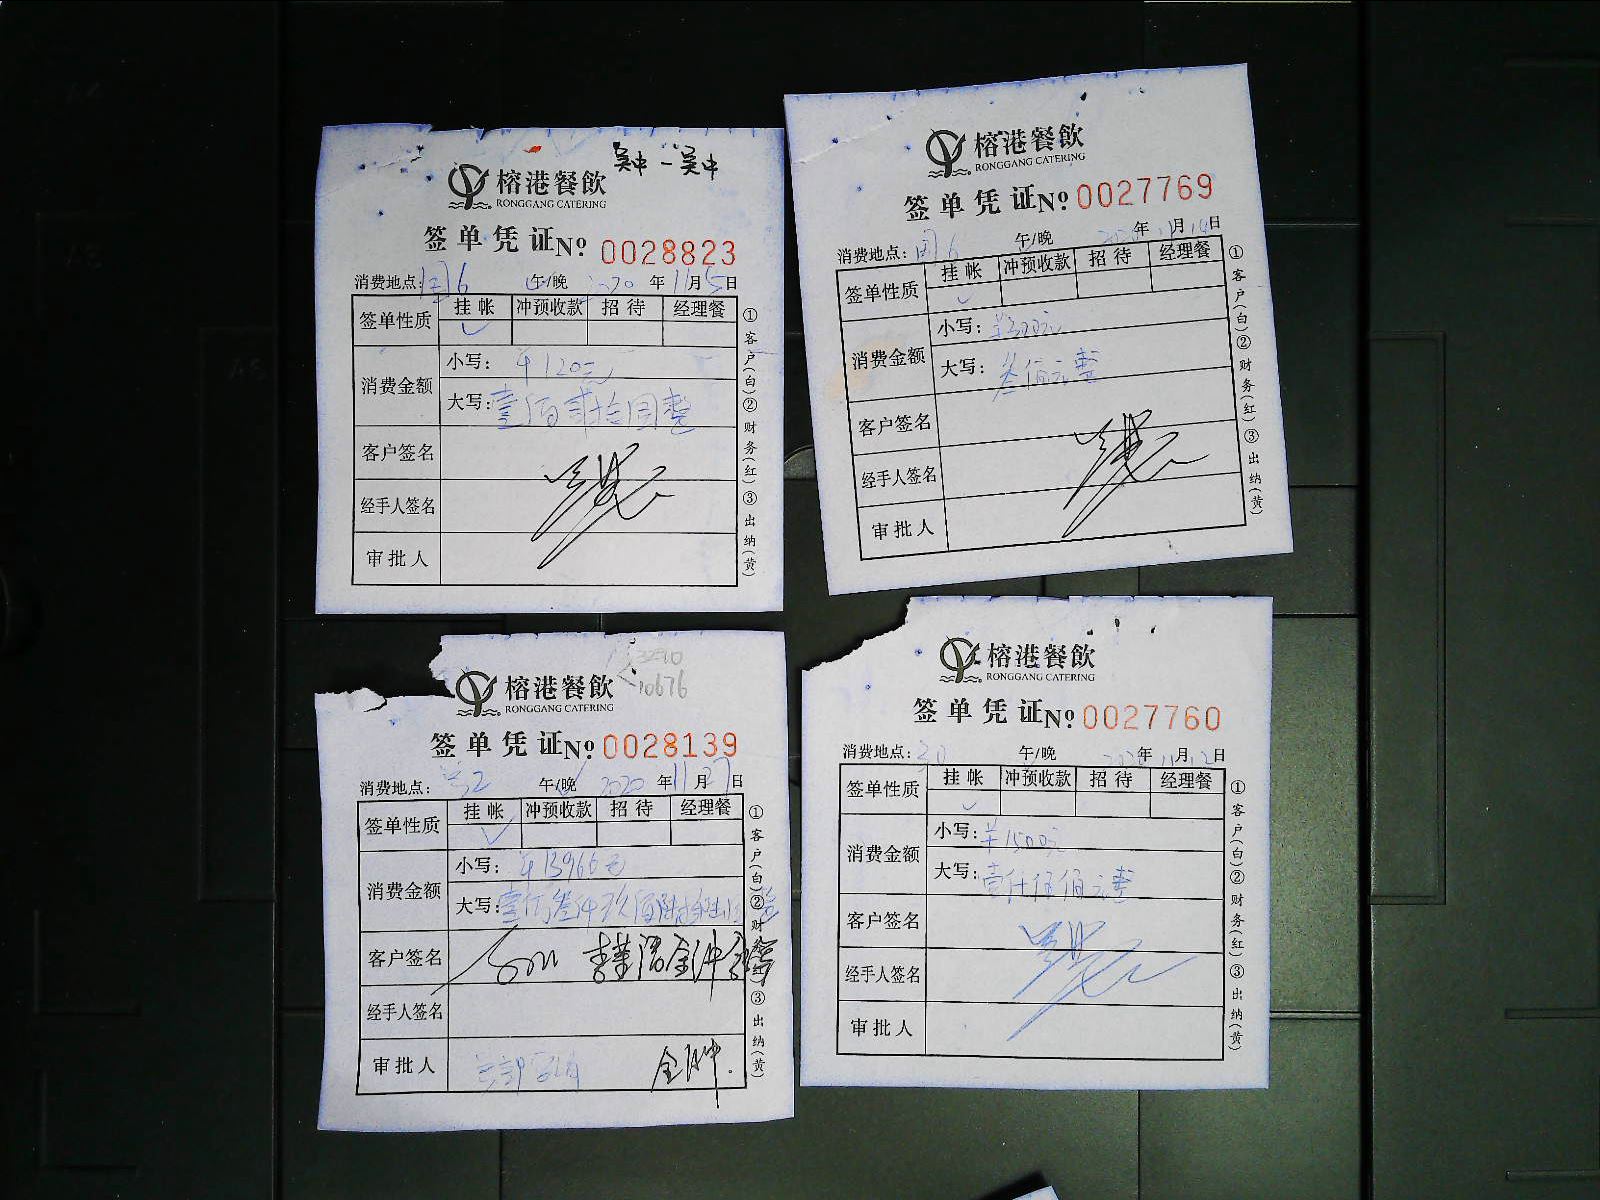 吴中 - 吴中
榕港餐飲
RONGGANG CATERING
签单凭证 Nº 0028823
消费地点: 闰6 午/晚 2020 年 11 月 5 日
签单性质 挂帐 冲预收款 招待 经理餐
消费金额
小写: ¥120元
大写: 壹佰贰拾圆整
客户签名
经手人签名
审批人
①客户(白)②财务(红)③出纳(黄)
榕港餐飲
RONGGANG CATERING
签单凭证 Nº 0027769
消费地点: 闰6 午/晚 2020 年 11 月 14 日
签单性质 挂帐 冲预收款 招待 经理餐
消费金额
小写: ¥300元
大写: 叁佰元整
客户签名
经手人签名
审批人
①客户(白)②财务(红)③出纳(黄)
3290
10676
榕港餐飲
RONGGANG CATERING
签单凭证 Nº 0028139
消费地点: 午/晚 2020 年 11 月 27 日
签单性质 挂帐 冲预收款 招待 经理餐
消费金额
小写: ¥13966元
大写: 壹万叁仟玖佰陆拾陆
客户签名
经手人签名
审批人
①客户(白)②财务(红)③出纳(黄)
榕港餐飲
RONGGANG CATERING
签单凭证 Nº 0027760
消费地点: 30 午/晚 2020 年 11 月 12 日
签单性质 挂帐 冲预收款 招待 经理餐
消费金额
小写: ¥1500元
大写: 壹仟伍佰元整
客户签名
经手人签名
审批人
①客户(白)②财务(红)③出纳(黄)